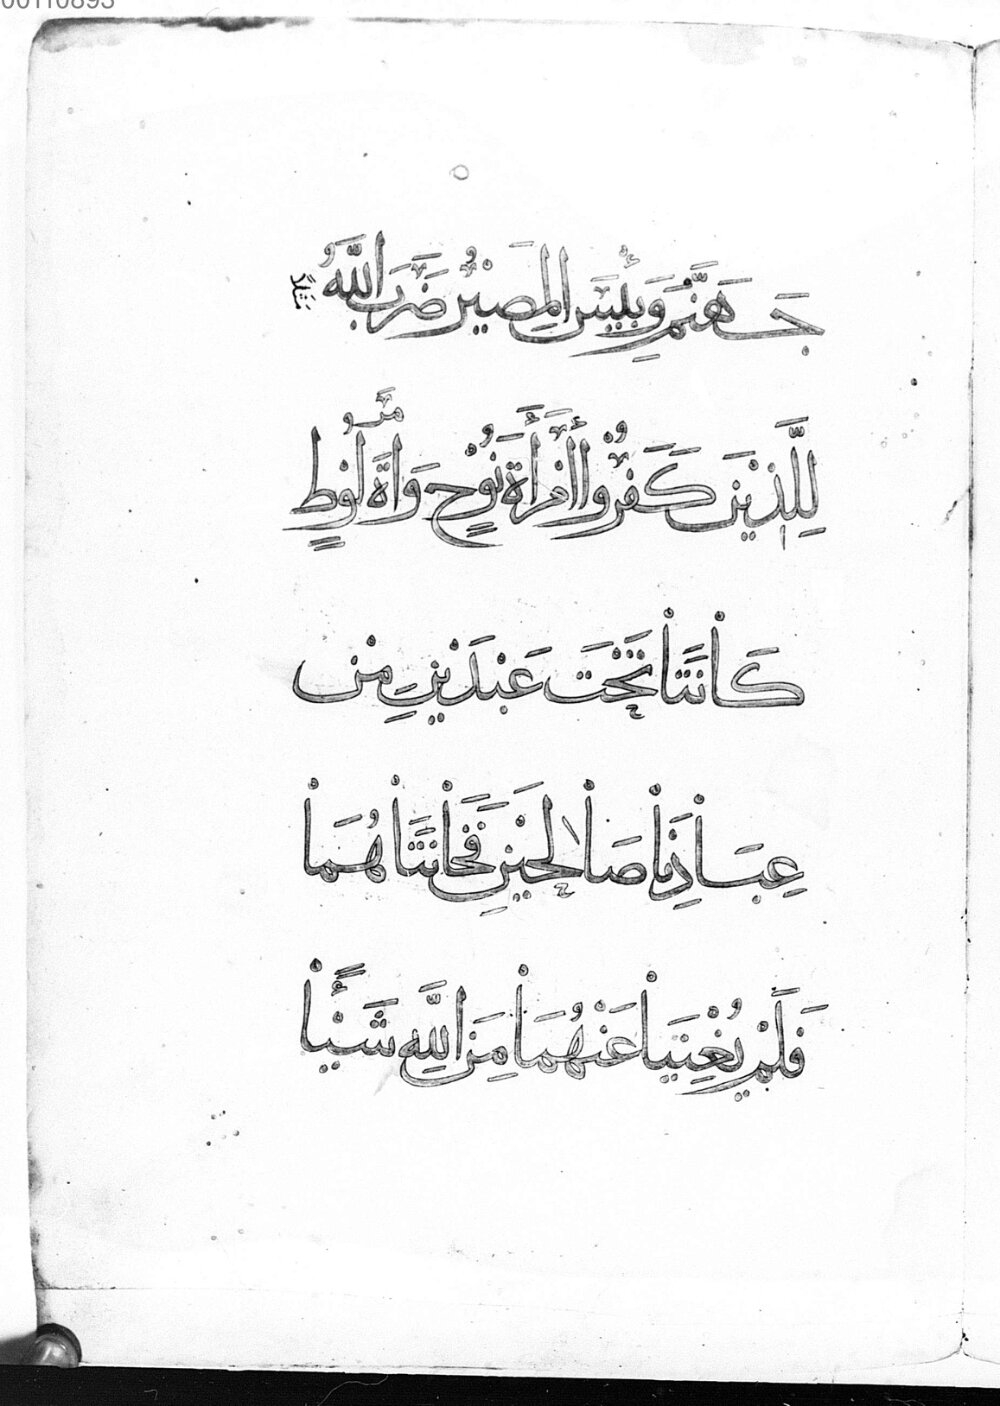 00110893
جَهَنَّمُ وَبِئْسَ الْمَصِيْرُ ضَرَبَ اللّٰهُ مَثَلًا
لِلَّذِيْنَ كَفَرُوا امْرَأَةَ نُوْحٍ وَامْرَأَةَ لُوْطٍ
كَانَتَا تَحْتَ عَبْدَيْنِ مِنْ
عِبَادِنَا صَالِحَيْنِ فَخَانَتَاهُمَا
فَلَمْ يُغْنِيَا عَنْهُمَا مِنَ اللّٰهِ شَيْئًا